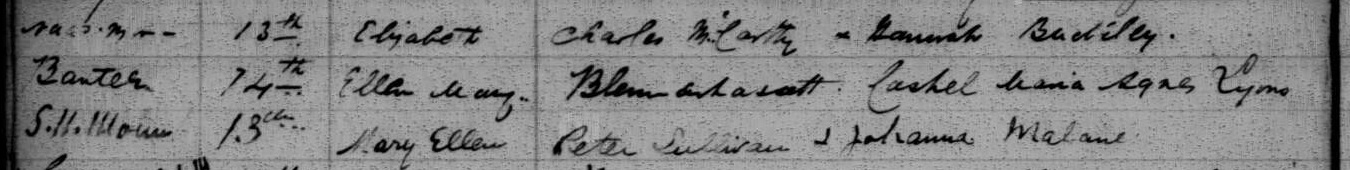 13th Elizabeth Charles McCarthy & Hannah Buckley.
Banteer 14th Ellen Mary. Blennerhassett. Cashel Maria Agnes Lyons
13th Mary Ellen Peter Sullivan & Johanna Malane